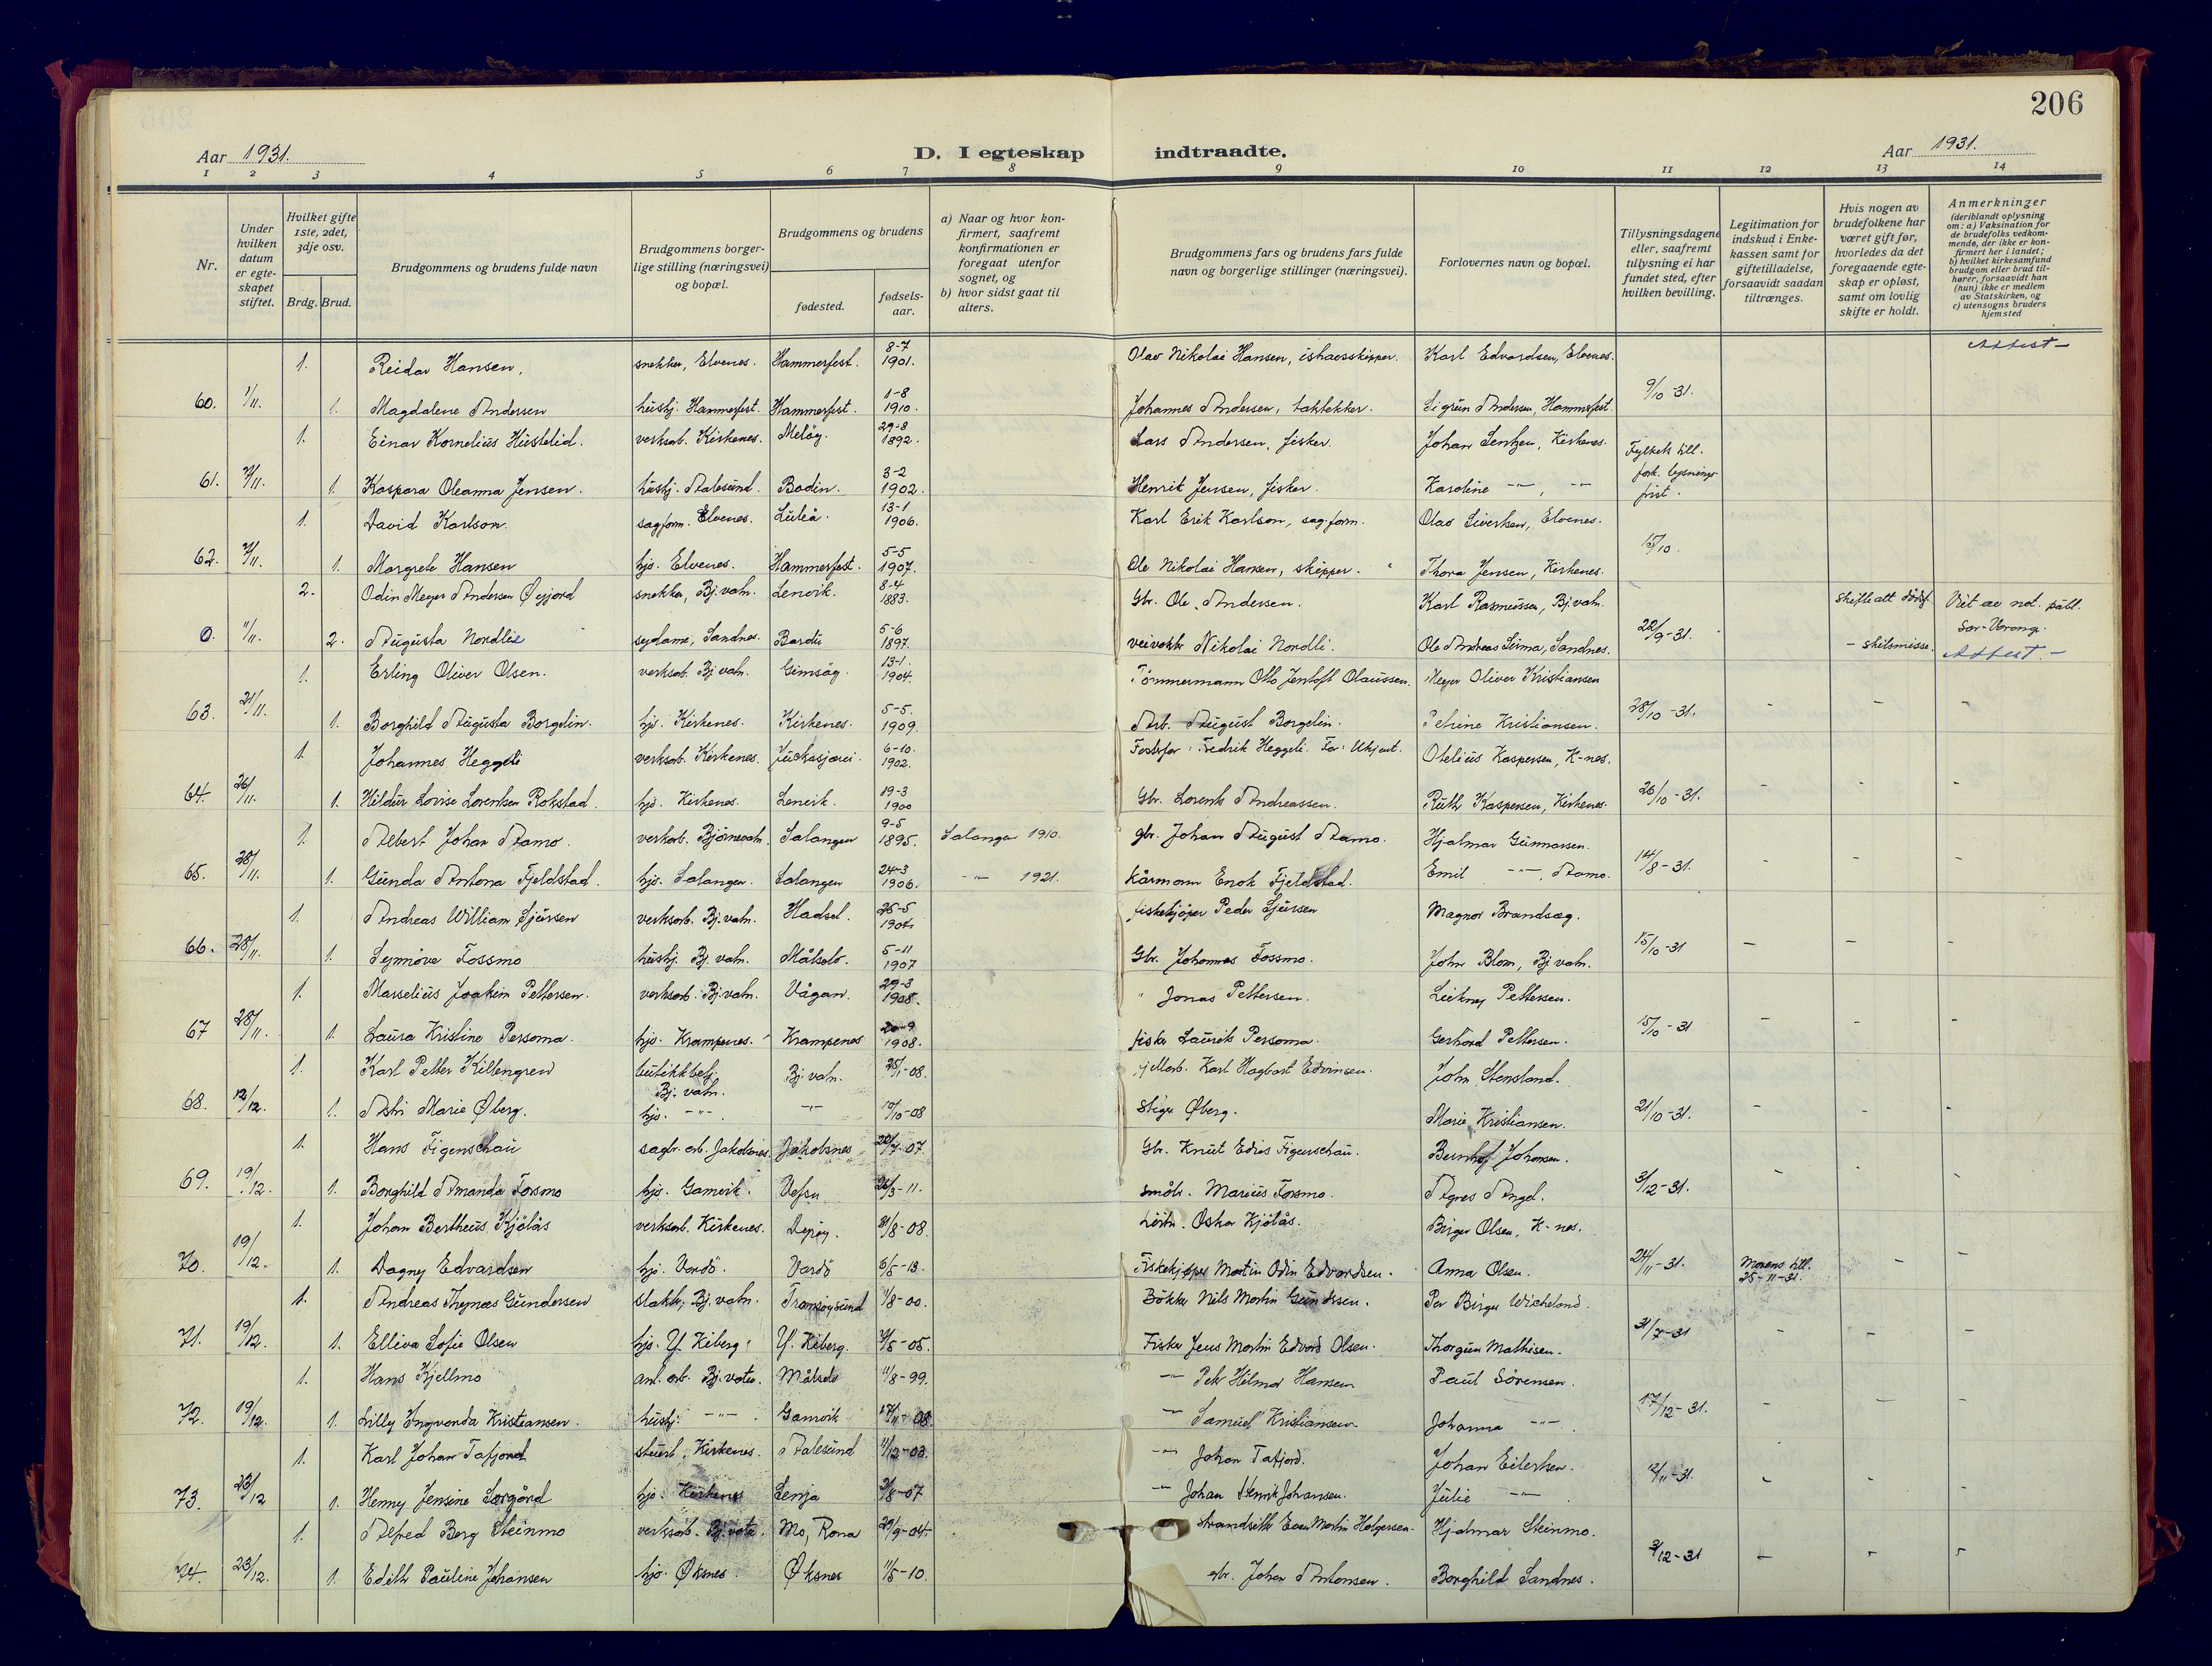 206
Aar 1931.
D. I egteskap indtraadte.
Aar 1931.
1 2 3 4 5 6 7 8 9 10 11 12 13 14
Nr.
Under hvilken datum er egteskapet stiftet.
Hvilket gifte 1ste, 2det, 3dje osv.
Brdg. Brud.
Brudgommens og brudens fulde navn
Brudgommens borgerlige stilling (næringsvei) og bopæl.
Brudgommens og brudens
fødested.
fødselsaar.
a) Naar og hvor konfirmert, saafremt konfirmationen er foregaat utenfor sognet, og
b) hvor sidst gaat til alters.
Brudgommens fars og brudens fars fulde navn og borgerlige stillinger (næringsvei).
Forlovernes navn og bopæl.
Tillysningsdagene eller, saafremt tillysning ei har fundet sted, efter hvilken bevilling.
Legitimation for indskud i Enkekassen samt for giftetilladelse, forsaavidt saadan tiltrænges.
Hvis nogen av brudefolkene har været gift før, hvorledes da det foregaaende egteskap er opløst, samt om lovlig skifte er holdt.
Anmerkninger (deriblandt oplysning om: a) Vaksination for de brudefolks vedkommende, der ikke er konfirmert her i landet; b) hvilket kirkesamfund brudgom eller brud tilhører, forsaavidt han (hun) ikke er medlem av Statskirken, og c) utensogns bruders hjemsted
1. Reidar Hansen, snekker, Elvenes. Hammerfest. 8-7 1901. Olav Nikolai Hansen, ishavsskipper. Karl Edvardsen, Elvenes. Attest -
60. 1/11. 1. Magdalene Andersen hushj. Hammerfest. Hammerfest. 1-8 1910. Johannes Andersen, taktekker. Sigrun Andersen, Hammerfest. 9/10-31.
1. Einar Kornelius Hustelid. verksarb. Kirkenes. Meløy. 29-8 1892. Lars Andersen, fisker. Johan Lentzen, Kirkenes. Fylkets till. fork. lysnings-
61. /11. 1. Kaspara Oleanna Jensen. hushj. Aalesund. Bodin. 3-2 1902. Henrik Jensen, fisker. Karoline -"-, -"- frist.
1. David Karlson. sagform. Elvenes. Luleå. 13-1 1906. Karl Erik Karlson, sag.form. Olav Sivertsen, Elvenes.
62. /11. 1. Margrete Hansen hjs. Elvenes. Hammerfest. 5-5 1907. Ole Nikolai Hansen, skipper. Thora Jensen, Kirkenes. 15/10.
2. Odin Meyer Andersen Øyjord snekker, Bj.vatn. Lenvik. 8-4 1883. Gbr. Ole Andersen. Karl Rasmussen, Bj.vatn. skifte att dødsf. Vit av nd.
Sør-Varang.
0. 11/11. 2. Augusta Nordlie sydame, Sandnes. Bardu 5-6 1897. veivokter Nikolai Nordli. Ole Andreas Sirma, Sandnes. 22/9-31. - skilsmisse. Attest. -
1. Erling Oliver Olsen. verksarb. Bj.vatn. Gimsøy. 13-1. 1904. Tömmermann Otto Jentoft Olaussen. Meyer Oliver Kristiansen
63. 21/11. 1. Borghild Augusta Borgelin. hjs. Kirkenes. Kirkenes. 5-5. 1909. Arb. August Borgelin. Petrine Kristiansen. 28/10-31. - - -
1. Johannes Heggeli verksarb. Kirkenes. Jukkasjærvi. 6-10. 1902. Fosterfar: Fredrik Heggeli. Far: Ukjent. Otelius Kaspersen, K-nes.
64. 26/11. 1. Hildur Lovise Lorentsen Rokstad. hjs. Kirkenes. Lenvik. 19-3 1900 Gbr. Lorents Andreassen. Ruth Kaspersen, Kirkenes. 26/10-31. - - -
1. Albert Johan Aamo. verksarb. Bjørnevatn. Salangen 9-5 1895. Salangen 1910. gbr. Johan August Aamo. Hjalmar Gunnarsen.
65. 28/11. 1. Gunda Antona Fjeldstad. hjs. Salangen. Salangen 24-3 1906. -"- 1921. kårmann Enok Fjeldstad. Emil -"-, Aamo. 14/8-31. - - -
1. Andreas William Sjursen verksarb. Bj.vatn. Hadsel. 26-5 1904 fiskekjöper Peder Sjursen Magnor Brandsæg.
66. 28/11. 1. Synnøve Fossmo hushj. Bj.vatn. Målselv. 5-11 1907 Gbr. Johannes Fossmo. John Blom, Bj.vatn. 15/10-31 - - -
1. Marselius Joakim Pettersen. verksarb. Bj.vatn. Vågan. 29-3 1908. " Jonas Pettersen. Leikny Pettersen.
67 28/11. 1. Laura Kristine Persoma. hjs. Krampenes. Krampenes 20-9 1908. fisker Laurits Persoma. Gerhard Pettersen. 15/10-31 - - -
1. Karl Petter Killengren butikkbetj. Bj.vatn. Bj.vatn. 25/1-08. fjellarb. Karl Hagbart Edvinsen. John Stensland.
68. 12/12. 1. Astri Marie Øberg. hjs. -"-. -"- 10/10-08 Stiger Øberg. Marie Kristiansen. 21/10-31. - - -
1. Hans Figenschau sagbr.arb. Jakobsnes. Jakobsnes 20/7-07. Gbr. Knut Edias Figenschau. Bernhof Johansen.
69. 19/12. 1. Borghild Amanda Forsmo hjs. Gamvik. Vefsn 26/3-11. småbr. Marius Forsmo. Agnes Angel. 3/12-31. - - -
1. Johan Bertheus Kjölås verksarb. Kirkenes. 31/8-08. Oskar Kjölås. Birger Olsen, K-nes.
70. 19/12. 1. Dagny Edvardsen hjs. Vardö. Vardö 6/5-13. Fiskekjøper Martin Odin Edvardsen. Anna Olsen. 24/11-31. Morens till. 25-11-31. - -
1. Andreas Thomas Gundersen slakter, Bj.vatn. Tromsøysund 11/8-00. Bökker Nils Martin Gundersen. Per Birger Wichsland.
71. 19/12. 1. Elliva Sofie Olsen hjs. Y. Kiberg. Y. Kiberg. /5-05. Fisker Jens Martin Edvard Olsen. Thorgun Mathisen. 31/7-31 - - -
1. Hans Kjellmo anl. arb. Bj.vatn. Målselv 11/8-99. -"- Petr Hilmar Hansen Paul Sörensen.
72. 19/12. 1. Lilly Ingvarda Kristiansen. hushj. -"-. Gamvik 17/11-08. -"- Samuel Kristiansen Johanna -"-. 17/12-31. - - -
1. Karl Johan Tafjord stuert, Kirkenes. Aalesund 11/12-03. -"- Johan Tafjord. Johan Eilertsen.
73. 23/12 1. Henny Jensine Sørgård hjs. Kirkenes Senja 31/8-07 -"- Johan Henrik Johansen. Julie -"-. 12/11-31. - - -
1. Alfred Berg Steinmo verksarb. Bj.vatn. Mo, Rana 29/9-04. strandsitter Even Martin Holgersen. Hjalmar Steinmo.
74. 23/12. 1. Edith Pauline Johansen hjs. Øksnes. Øksnes 11/5-10. gbr. Johan Antonsen. Borghild Sandnes. 3/12-31 - - -